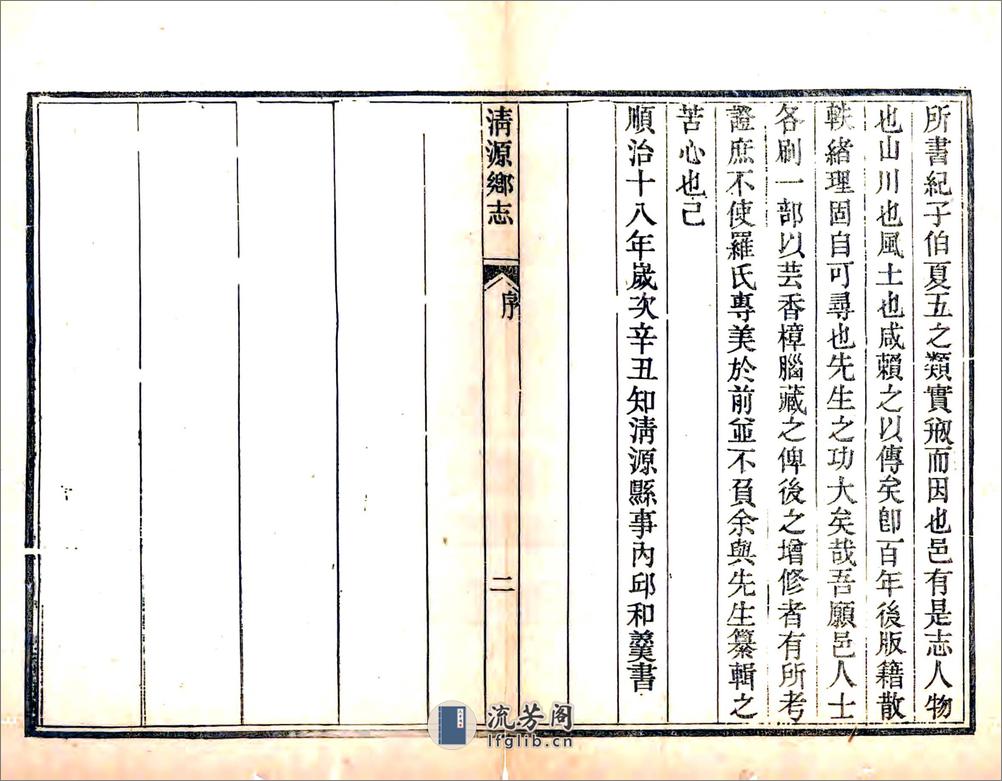 所書紀子伯夏五之類實㓂而因也邑有是志人物
也山川也風土也咸賴之以傳矣卽百年後版籍散
軼緒理固自可尋也先生之功大矣哉吾願邑人士
各刷一部以芸香樟腦藏之俾後之增修者有所考
證庶不使羅氏專美於前並不負余與先生纂輯之
苦心也已
順治十八年嵗次辛丑知淸源縣事內邱和羹書
淸源鄉志
序
二
流芳阁
lfglib.cn